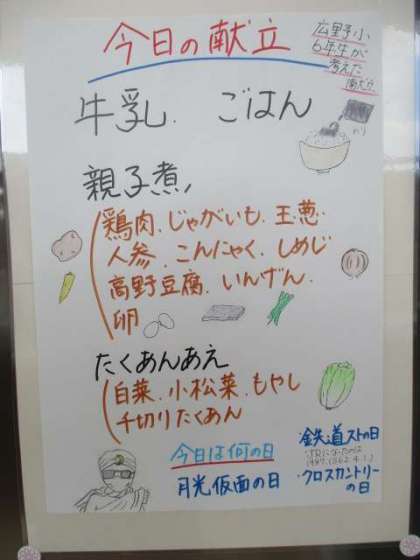 今日の献立
広野小
6年生が
考えた
献立
牛乳. ごはん
のり
親子煮
鶏肉.じゃがいも.玉葱.
人参.こんにゃく.しめじ
高野豆腐.いんげん.
卵
たくあんあえ
白菜.小松菜.もやし
千切りたくあん
今日は何の日
月光仮面の日
・鉄道ストの日
・クロスカントリー
の日